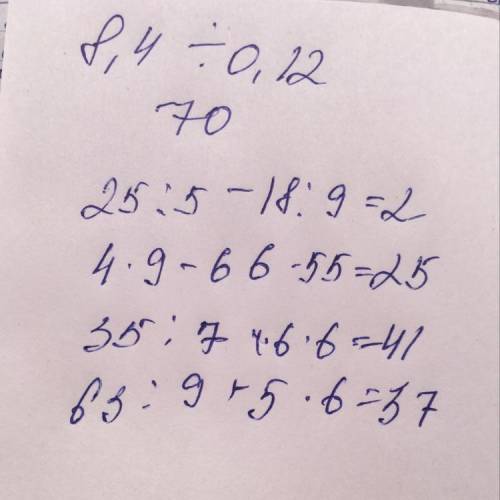 8,4 ÷ 0,12
70
25 : 5 - 18 : 9 = 2
4 · 9 - 66 - 55 = 25
35 : 7 + 6 · 6 = 41
63 : 9 + 5 · 6 = 37